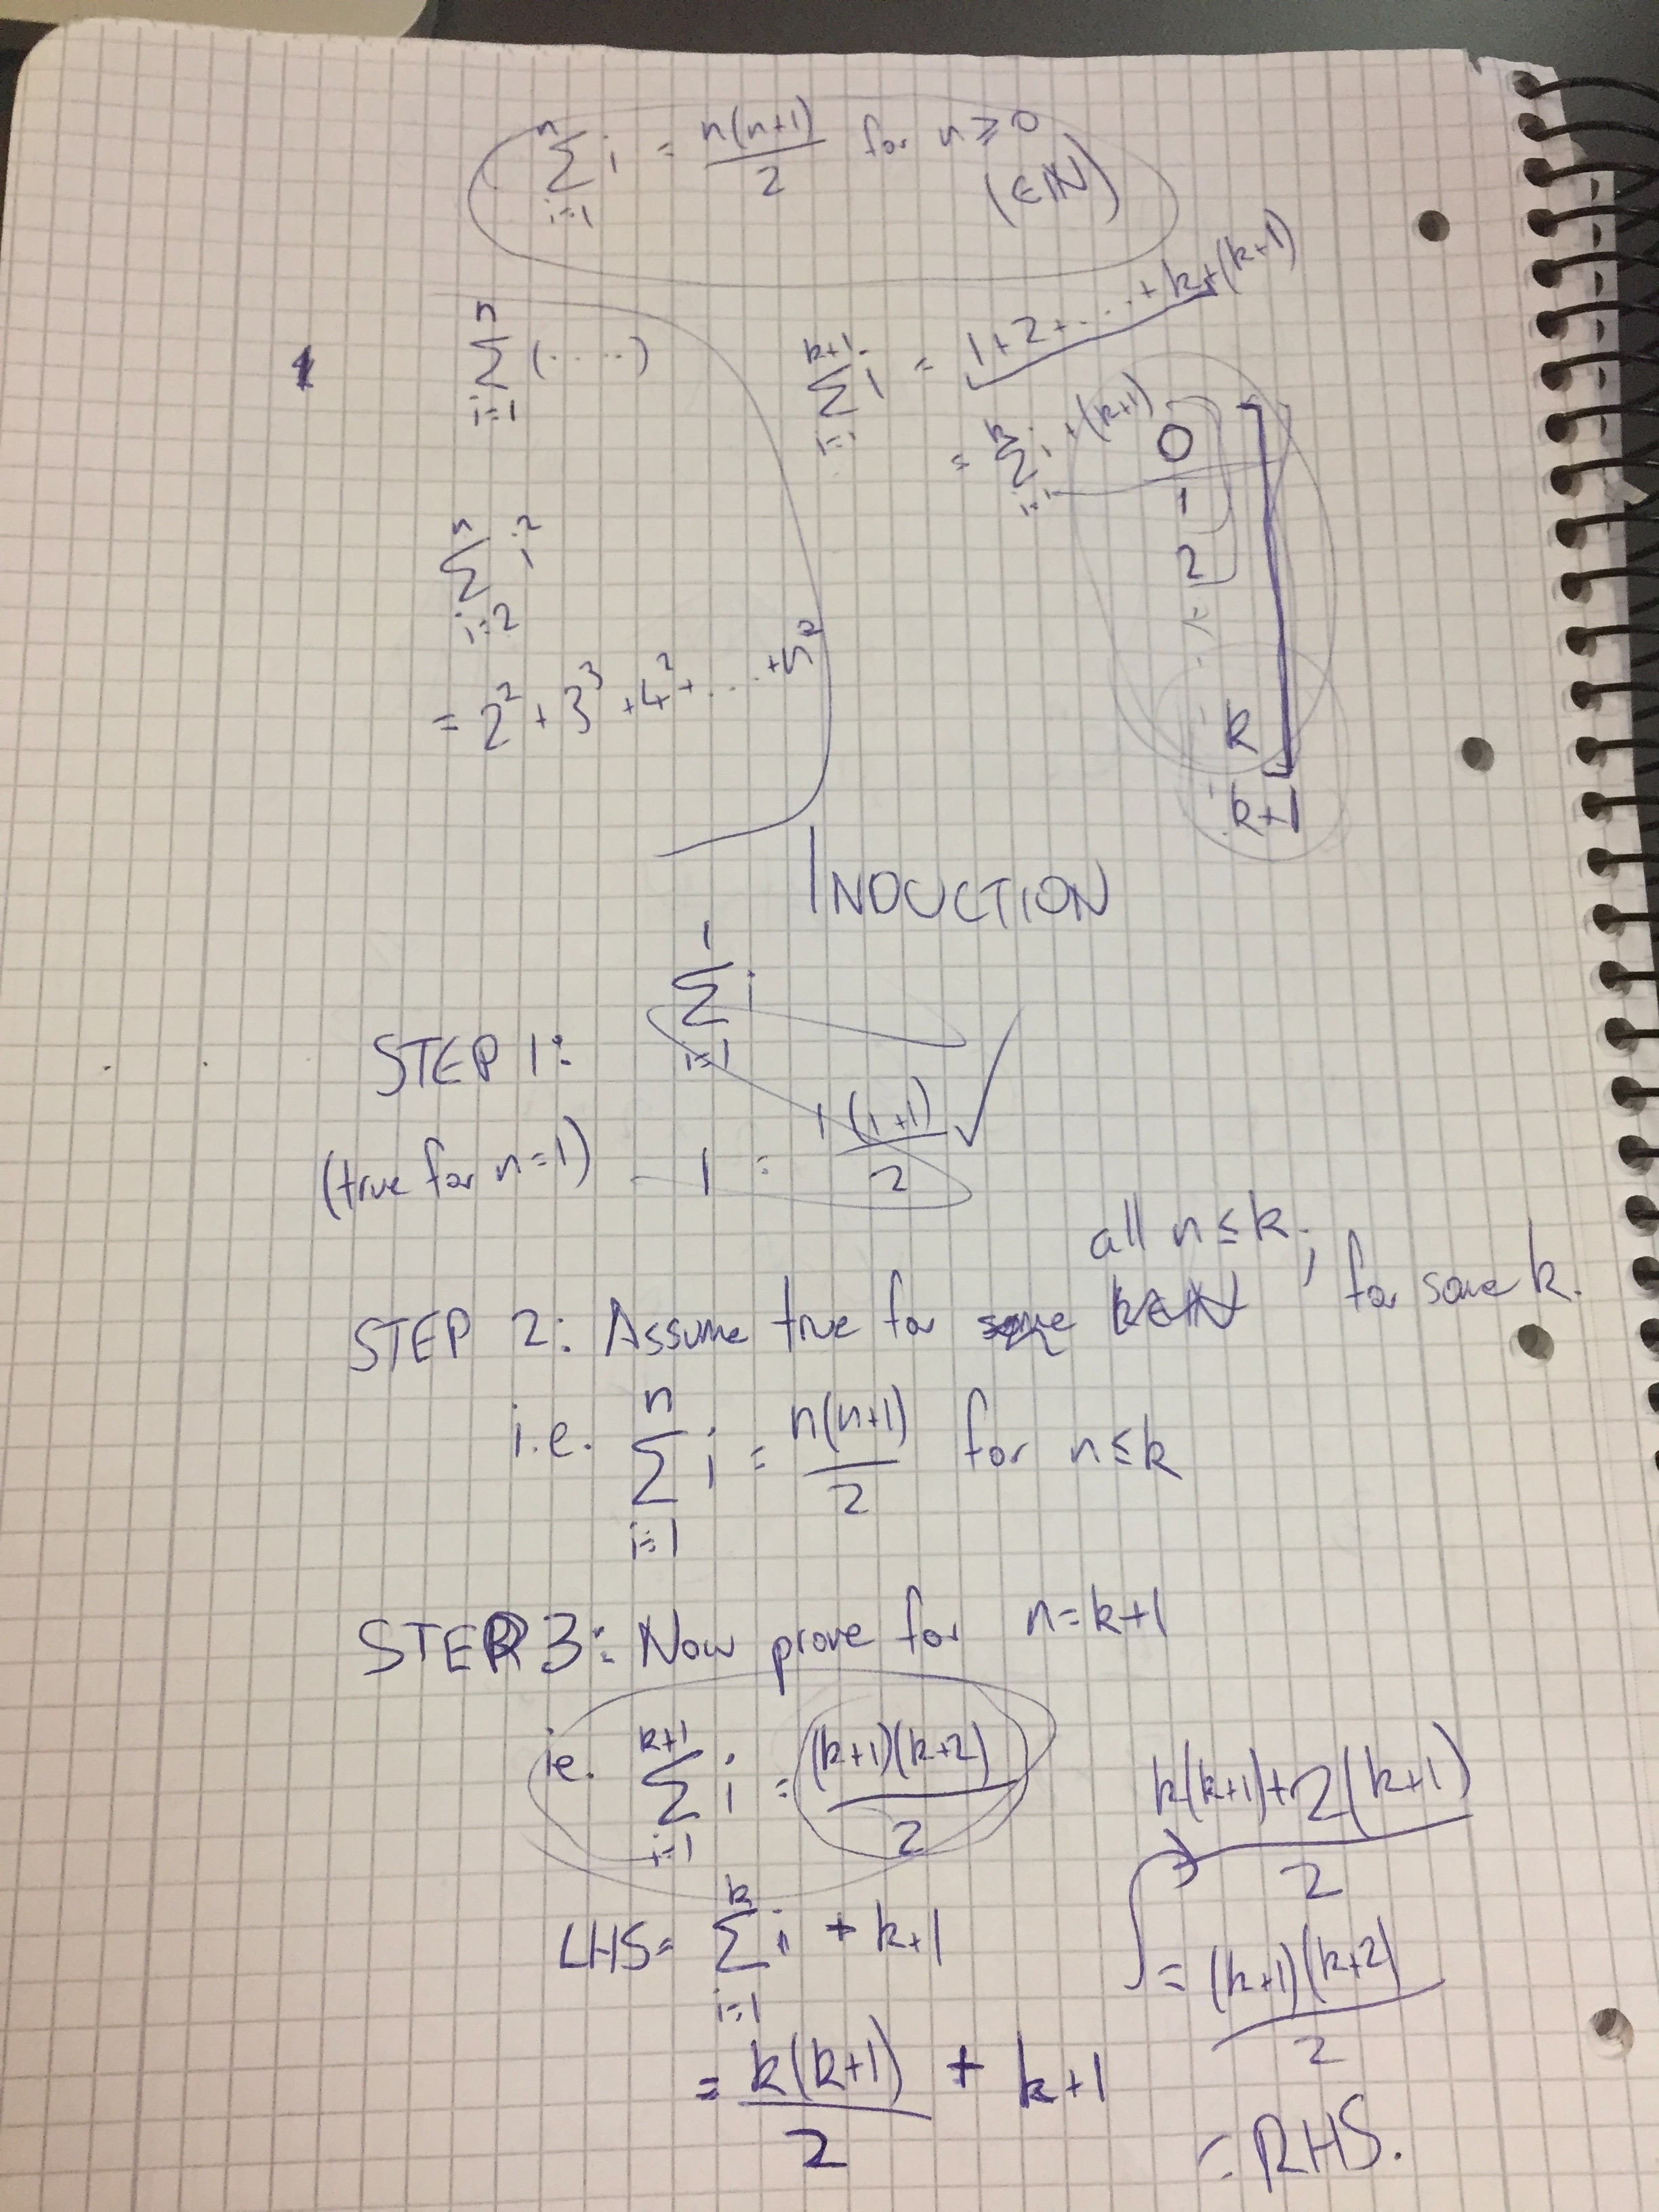 n∑i=1 i = n(n+1)/2 for n ≥ 0
(∈ℕ)
n∑i=1 (.....)
k+1∑i=1 i = 1+2+...+k+(k+1)
= k∑i=1 i +(k+1)
0
1
2
k
k+1
n∑i=2 i²
= 2² + 3³ + 4² + ... + n²
INDUCTION
STEP 1: 1∑i=1 i
(true for n=1) 1 = 1(1+1)/2 ✓
all n ≤ k;
STEP 2: Assume true for some k∈ℕ for some k.
i.e. n∑i=1 i = n(n+1)/2 for n ≤ k
STEP 3: Now prove for n=k+1
ie. k+1∑i=1 i = (k+1)(k+2)/2
LHS = k∑i=1 i + k+1
= k(k+1)/2 + k+1
k(k+1)+2(k+1)/2
= (k+1)(k+2)/2
= RHS.